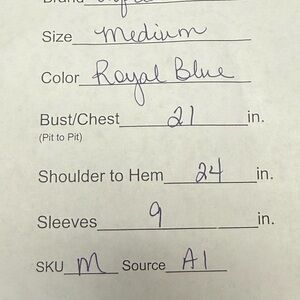 Brand
Size Medium
Color Royal Blue
Bust/Chest 21 in.
(Pit to Pit)
Shoulder to Hem 24 in.
Sleeves 9 in.
SKU M Source A1